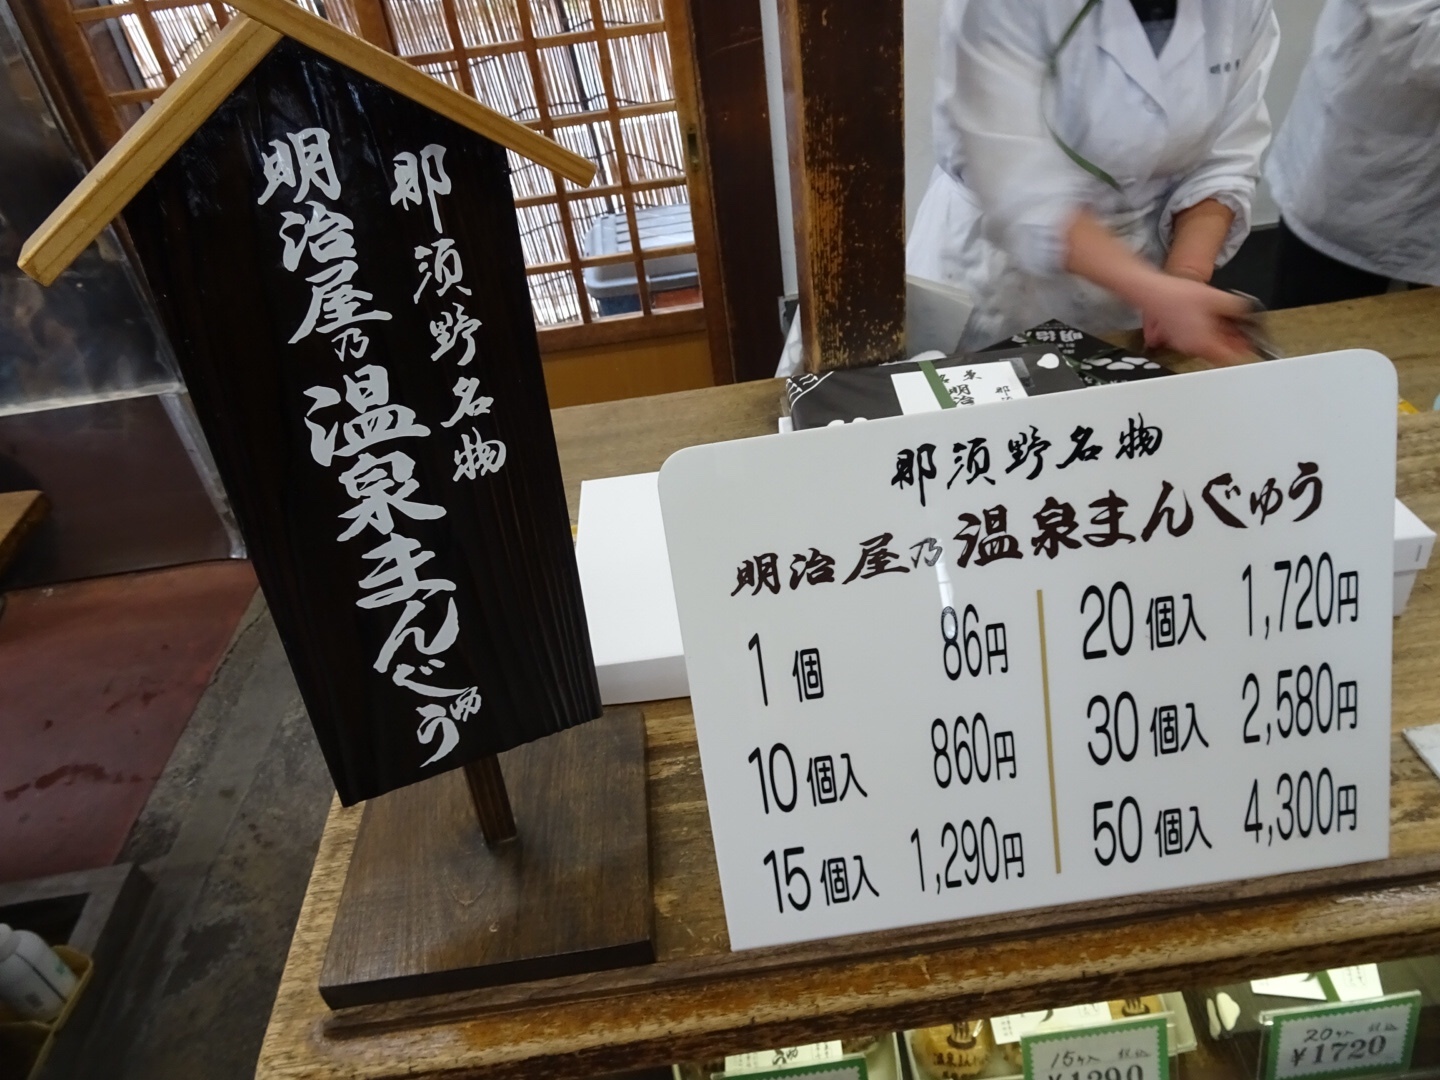 那須野名物
明治屋乃温泉まんぢゅう
那須野名物
明治屋乃温泉まんぢゅう
1個 86円
10個入 860円
15個入 1,290円
20個入 1,720円
30個入 2,580円
50個入 4,300円
明治
15ヶ入 税込
¥1290
20ヶ入 税込
¥1720